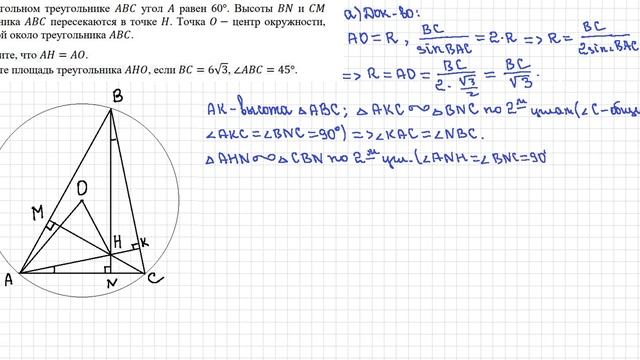 угольном треугольнике ABC угол A равен 60°. Высоты BN и CM
ника ABC пересекаются в точке H. Точка O − центр окружности,
ой около треугольника ABC.
ите, что AH = AO.
те площадь треугольника AHO, если BC = 6√3, ∠ABC = 45°.
а) Док-во:
AO = R, BC/sinBAC = 2·R => R = BC/2sin∠BAC
=> R = AO = BC/(2·√3/2) = BC/√3.
AK-высота △ABC; △AKC ∾ △BNC по 2м углам (∠C-общ
∠AKC = ∠BNC = 90°) => ∠KAC = ∠NBC.
△AHN ∾ △CBN по 2м угл. (∠ANH = ∠BNC = 90°
B
O
M
H
K
A
N
C